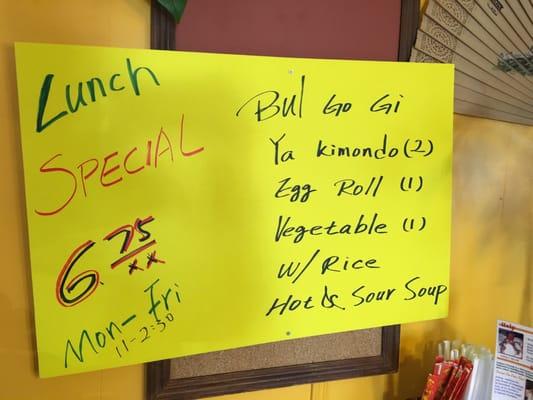 Lunch
SPECIAL
6.75
xx
Mon-Fri
11-2:30
Bul Go Gi
Ya kimondo (2)
Egg Roll (1)
Vegetable (1)
w/ Rice
Hot & Sour Soup